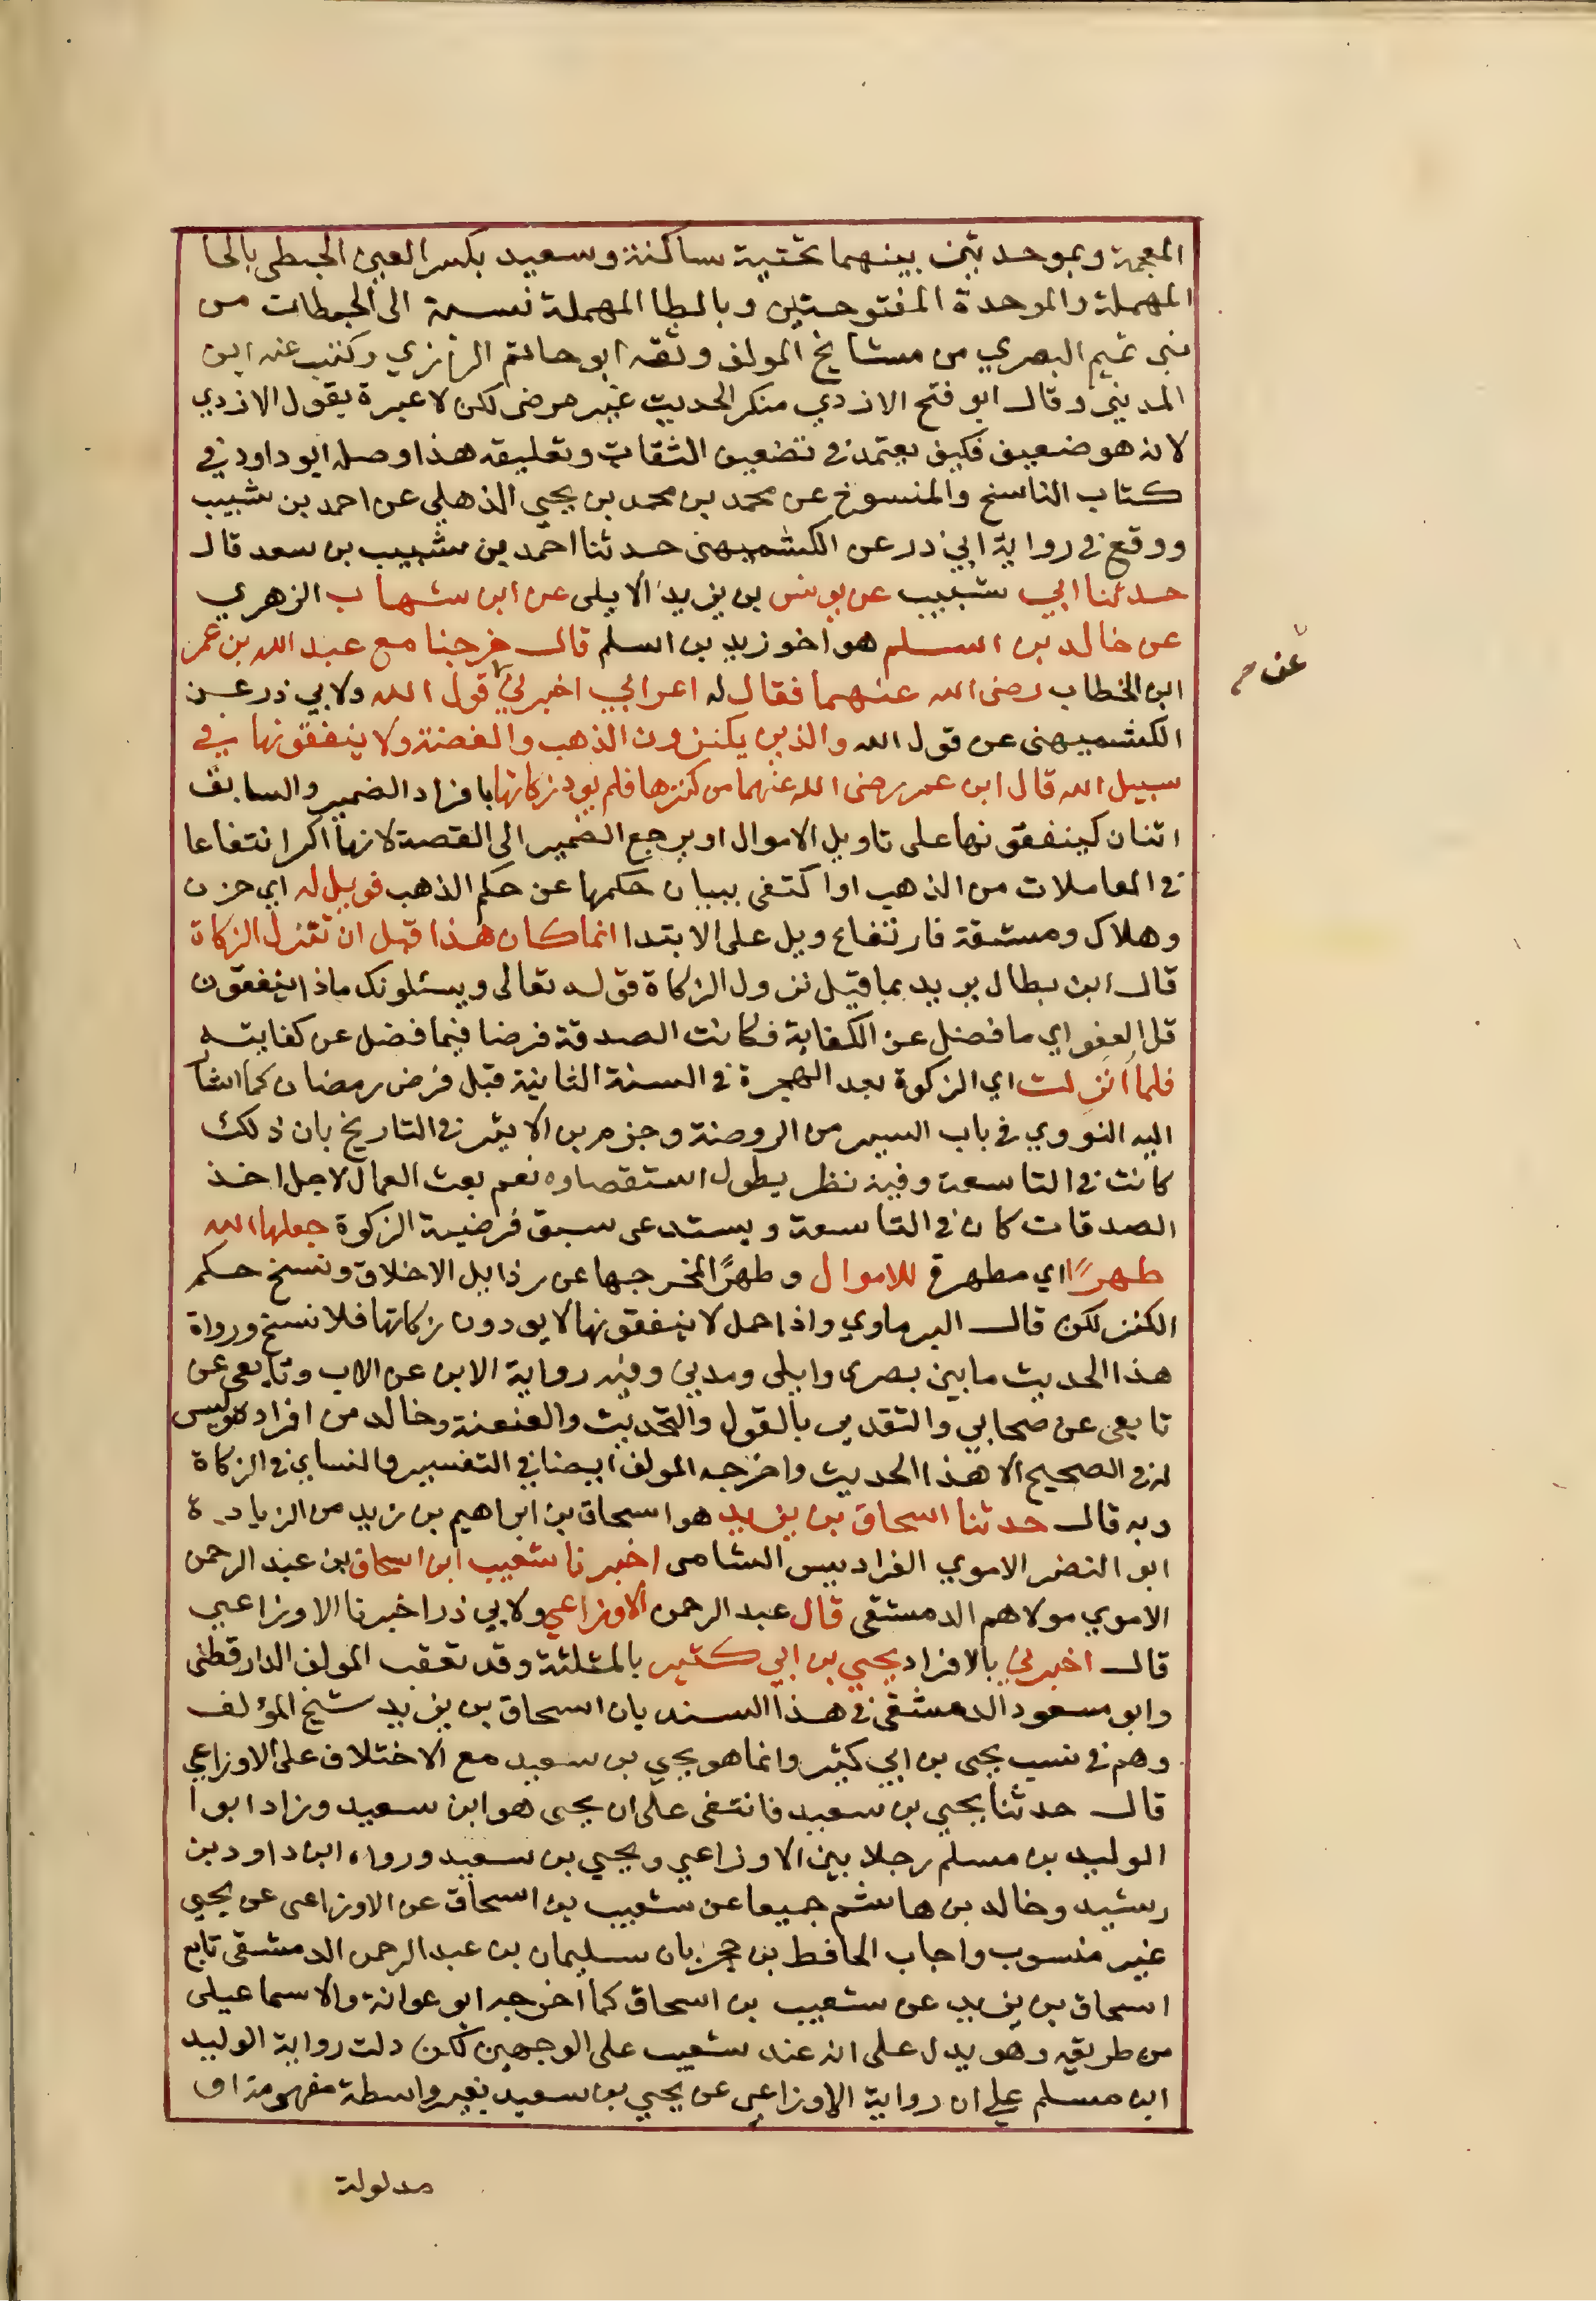 المعجمة وبموحدتين بينهما تحتية ساكنة وسعيد بكسر العين الحبطى بالحا
المهملة والموحدة المفتوحتين وبالطا المهملة نسبة الى الحبطات من
بنى تميم البصري من مشايخ المولف وثقه ابو حاتم الرازي وكتب عنه ابن
المديني وقال ابو فتح الازدي منكر الحديث غير مرضى لكن لا عبرة بقول الازدي
لانه هو ضعيف فكيف يعتمد في تضعيف الثقات وتعليقه هذا وصله ابو داود في
كتاب الناسخ والمنسوخ عن محمد بن محمد بن يحيى الذهلي عن احمد بن شبيب
ووقع في رواية ابي ذر عن الكشميهنى حدثنا احمد بن شبيب بن سعد قال
حدثنا ابي شبيب عن يونس بن يزيد الايلى عن ابن شهاب الزهري
عن خالد بن اسلم هو اخو زيد بن اسلم قال خرجنا مع عبد الله بن عمر
ابن الخطاب رضى الله عنهما فقال له اعرابي اخبرني قول الله ولابي ذر عن
عن
الكشميهنى عن قول الله والذين يكنزون الذهب والفضة ولا ينفقونها في
سبيل الله قال ابن عمر رضى الله عنهما من كنزها فلم يود زكاتها بافراد الضمير والسابق
اثنان كينفقونها على تاويل الاموال او يرجع الضمير الى الفضة لانها اكر انتفاعا
في المعاملات من الذهب او اكتفى ببيان حكمها عن حكم الذهب فويل له اي حزن
وهلاك ومشقة فارتفاع ويل على الابتدا انما كان هذا قبل ان تنزل الزكاة
قال ابن بطال يريد بما قبل نزول الزكاة قوله تعالى ويسئلونك ماذا ينفقون
قل العفو اي ما فضل عن الكفاية فكانت الصدقة فرضا فيما فضل عن كفايته
فلما انزلت اي الزكوة بعد الهجرة في السنة الثانية قبل فرض رمضان كما اشا
اليه النووي في باب السير من الروضة وجزم بن الاثير في التاريخ بان ذلك
كانت في التاسعة وفيه نظر يطول استقصاوه نعم بعث العمال لاجل اخذ
الصدقات كان في التاسعة ويستدعى سبق فرضية الزكوة جعلها الله
طهرًا اي مطهرة للاموال وطهرًا لمخرجها عن رذايل الاخلاق ونسخ حكم
الكنز لكن قال البرماوي واذا حمل لا ينفقونها لا يودون زكاتها فلا نسخ ورواة
هذا الحديث ما بين بصرى وايلى ومدني وفيه رواية الابن عن الاب وتابعي عن
تابعى عن صحابي والتقديم بالقول والتحديث والعنعنة وخالد من افراده وليس
له في الصحيح الا هذا الحديث واخرجه المولف ايضا في التفسير والنساي في الزكاة
وبه قال حدثنا اسحاق بن يزيد هو اسحاق بن ابراهيم بن يزيد من الزيادة
ابو النضر الاموي الفراديس الشامى اخبرنا شعيب ابن اسحاق بن عبد الرحمن
الاموي مولاهم الدمشقى قال عبد الرحمن الاوزاعي ولابي ذر اخبرنا الاوزاعي
قال اخبرني بالافراد يحيي بن ابي كثير بالمثلثة وقد تعقب المولف الدارقطنى
وابو مسعود الدمشقى في هذا السند بان اسحاق بن يزيد شيخ المؤلف
وهم في نسب يحيى بن ابي كثير وانما هو يحيي بن سعيد مع الاختلاف على الاوزاعي
قال حدثنا يحيي بن سعيد فانتفى على ان يحيى هو ابن سعيد وزاد ابو ا
الوليد بن مسلم رجلا بين الاوزاعي ويحيي بن سعيد ورواه ابن داود بن
رشيد وخالد بن هاشم جميعا عن شعيب بن اسحاق عن الاوزاعى عن يحيى
غير منسوب واجاب الحافط بن حجر بان سليمان بن عبد الرحمن الدمشقى تابع
اسحاق بن يزيد عن شعيب بن اسحاق كما اخرجه ابو عوانة والاسماعيلى
من طريقه وهو يدل على انه عند شعيب على الوجهين لكن دلت رواية الوليد
ابن مسلم على ان رواية الاوزاعى عن يحيي بن سعيد بغير واسطة مفهومة او
مدلولة